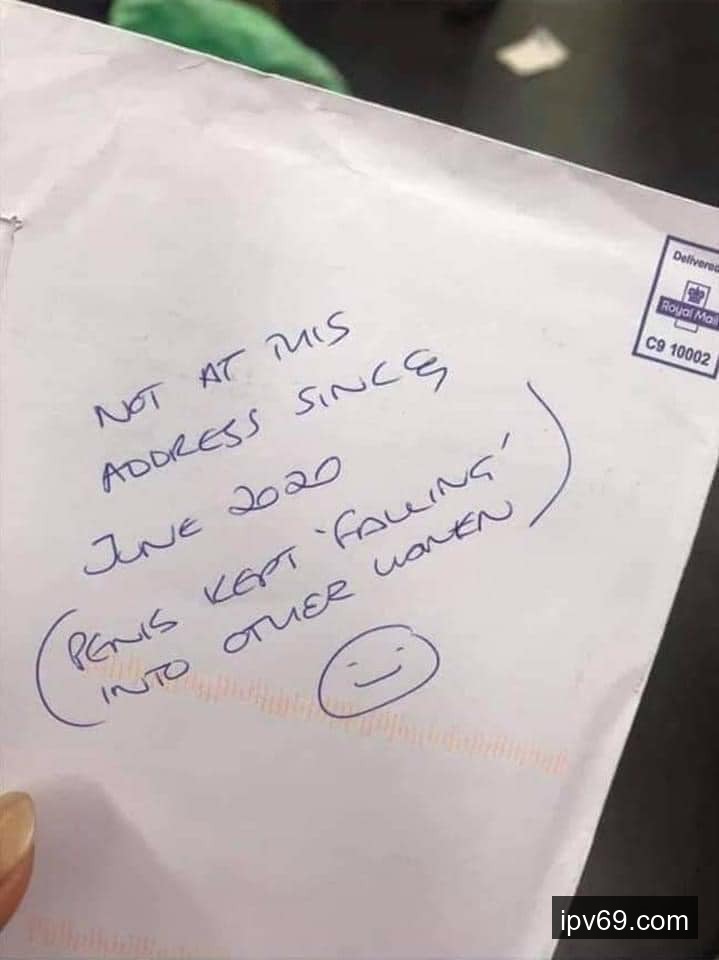 Delivered
Royal Mail
C9 10002
NOT AT THIS
ADDRESS SINCE
JUNE 2020
(PENIS KEPT 'FALLING'
INTO OTHER WOMEN)
ipv69.com